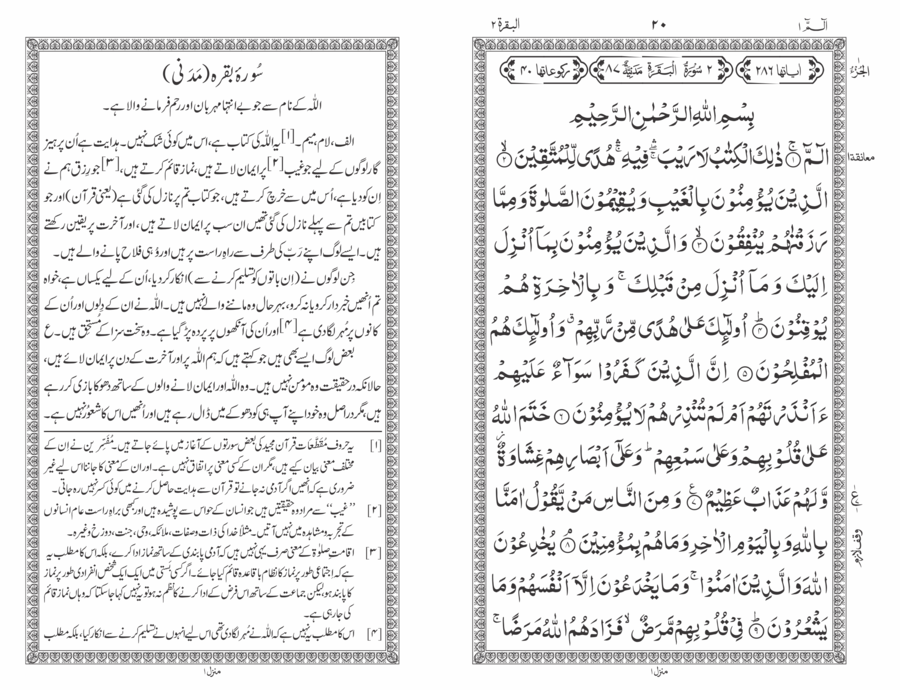 الٓمّٓ ١
٢٠
البقرة ٢
الجُزءُ
اٰیاتها ٢٨٦
٢ سُوْرَةُ الْبَقَرَةِ مَدَنِيَّةٌ ٨٧
رکوعاتها ۴۰
بِسْمِ اللهِ الرَّحْمٰنِ الرَّحِيْمِ
الٓمّٓ ۚ﴿۱﴾ ذٰلِكَ الْكِتٰبُ لَا رَيْبَ ۛۚ فِيْهِ ۛۚ هُدًى لِّلْمُتَّقِيْنَ ۙ﴿۲﴾
معانقة ۱
الَّذِيْنَ يُؤْمِنُوْنَ بِالْغَيْبِ وَيُقِيْمُوْنَ الصَّلٰوةَ وَمِمَّا
رَزَقْنٰهُمْ يُنْفِقُوْنَ ۙ﴿۳﴾ وَالَّذِيْنَ يُؤْمِنُوْنَ بِمَآ اُنْزِلَ
اِلَيْكَ وَ مَآ اُنْزِلَ مِنْ قَبْلِكَ ۚ وَ بِالْاٰخِرَةِ هُمْ
يُوْقِنُوْنَ ؕ﴿۴﴾ اُولٰٓئِكَ عَلٰى هُدًى مِّنْ رَّبِّهِمْ ۗ وَاُولٰٓئِكَ هُمُ
الْمُفْلِحُوْنَ ﴿۵﴾ اِنَّ الَّذِيْنَ كَفَرُوْا سَوَآءٌ عَلَيْهِمْ
ءَاَنْذَرْتَهُمْ اَمْ لَمْ تُنْذِرْهُمْ لَا يُؤْمِنُوْنَ ﴿۶﴾ خَتَمَ اللهُ
عَلٰى قُلُوْبِهِمْ وَعَلٰى سَمْعِهِمْ ؕ وَعَلٰٓى اَبْصَارِهِمْ غِشَاوَةٌ ۫
وَّلَهُمْ عَذَابٌ عَظِيْمٌ ﴿۷﴾ وَمِنَ النَّاسِ مَنْ يَّقُوْلُ اٰمَنَّا
بِاللهِ وَبِالْيَوْمِ الْاٰخِرِ وَمَا هُمْ بِمُؤْمِنِيْنَ ۘ﴿۸﴾ يُخٰدِعُوْنَ
وقف لازم
اللهَ وَالَّذِيْنَ اٰمَنُوْا ۚ وَمَا يَخْدَعُوْنَ اِلَّآ اَنْفُسَهُمْ وَمَا
يَشْعُرُوْنَ ؕ﴿۹﴾ فِيْ قُلُوْبِهِمْ مَّرَضٌ ۙ فَزَادَهُمُ اللهُ مَرَضًا ۚ
منزل ۱
سُورۂ بقرہ (مَدَنی)
اللہ کے نام سے جو بے انتہا مہربان اور رحم فرمانے والا ہے۔
الف، لام، میم۔[۱] یہ اللہ کی کتاب ہے، اس میں کوئی شک نہیں۔ ہدایت ہے اُن پرہیز
گار لوگوں کے لیے جو غیب[۲] پر ایمان لاتے ہیں، نماز قائم کرتے ہیں،[۳] جو رزق ہم نے
اِن کو دیا ہے، اُس میں سے خرچ کرتے ہیں، جو کتاب تم پر نازل کی گئی ہے (یعنی قرآن) اور جو
کتابیں تم سے پہلے نازل کی گئی تھیں ان سب پر ایمان لاتے ہیں، اور آخرت پر یقین رکھتے
ہیں۔ ایسے لوگ اپنے ربّ کی طرف سے راہِ راست پر ہیں اور وُہی فلاح پانے والے ہیں۔
جِن لوگوں نے (اِن باتوں کو تسلیم کرنے سے) انکار کر دیا، اُن کے لیے یکساں ہے، خواہ
تم اُنھیں خبردار کرو یا نہ کرو، بہر حال وہ ماننے والے نہیں ہیں۔ اللہ نے ان کے دِلوں اور اُن کے
کانوں پر مُہر لگا دی ہے[۴] اور اُن کی آنکھوں پر پردہ پڑ گیا ہے۔ وہ سخت سزا کے مُستحق ہیں۔ ع
بعض لوگ ایسے بھی ہیں جو کہتے ہیں کہ ہم اللہ پر اور آخرت کے دن پر ایمان لائے ہیں،
حالانکہ درحقیقت وہ مؤمن نہیں ہیں۔ وہ اللہ اور ایمان لانے والوں کے ساتھ دھوکا بازی کر رہے
ہیں، مگر دراصل وہ خود اپنے آپ ہی کو دھوکے میں ڈال رہے ہیں اور اُنھیں اس کا شعور نہیں ہے۔
[۱] یہ حروفِ مُقَطَّعات قرآنِ مجید کی بعض سورتوں کے آغاز میں پائے جاتے ہیں۔ مُفَسِّرین نے اِن کے
مختلف معنی بیان کیے ہیں، مگر ان کے کسی معنی پر اتفاق نہیں ہے۔ اور ان کے معنی کا جاننا اس لیے غیر
ضروری ہے کہ انھیں اگر آدمی نہ جانے تو قرآن سے ہدایت حاصل کرنے میں کوئی کسر نہیں رہ جاتی۔
[۲] ”غیب“ سے مراد وہ حقیقتیں ہیں جو انسان کے حواس سے پوشیدہ ہیں اور کبھی براہِ راست عام انسانوں
کے تجربہ و مشاہدہ میں نہیں آتیں۔ مثلاً خدا کی ذات و صفات، ملائکہ، وحی، جنت، دوزخ وغیرہ۔
[۳] اقامتِ صلوٰۃ کے معنی صرف یہی نہیں ہیں کہ آدمی پابندی کے ساتھ نماز ادا کرے، بلکہ اس کا مطلب یہ
ہے کہ اجتماعی طور پر نماز کا نظام باقاعدہ قائم کیا جائے۔ اگر کسی بستی میں ایک ایک شخص انفرادی طور پر نماز
کا پابند ہو، لیکن جماعت کے ساتھ اس فرض کے ادا کرنے کا نظم نہ ہو تو یہ نہیں کہا جا سکتا کہ وہاں نماز قائم
کی جا رہی ہے۔
[۴] اس کا مطلب یہ نہیں ہے کہ اللہ نے مُہر لگا دی تھی اس لیے انہوں نے تسلیم کرنے سے انکار کیا، بلکہ مطلب
منزل ۱